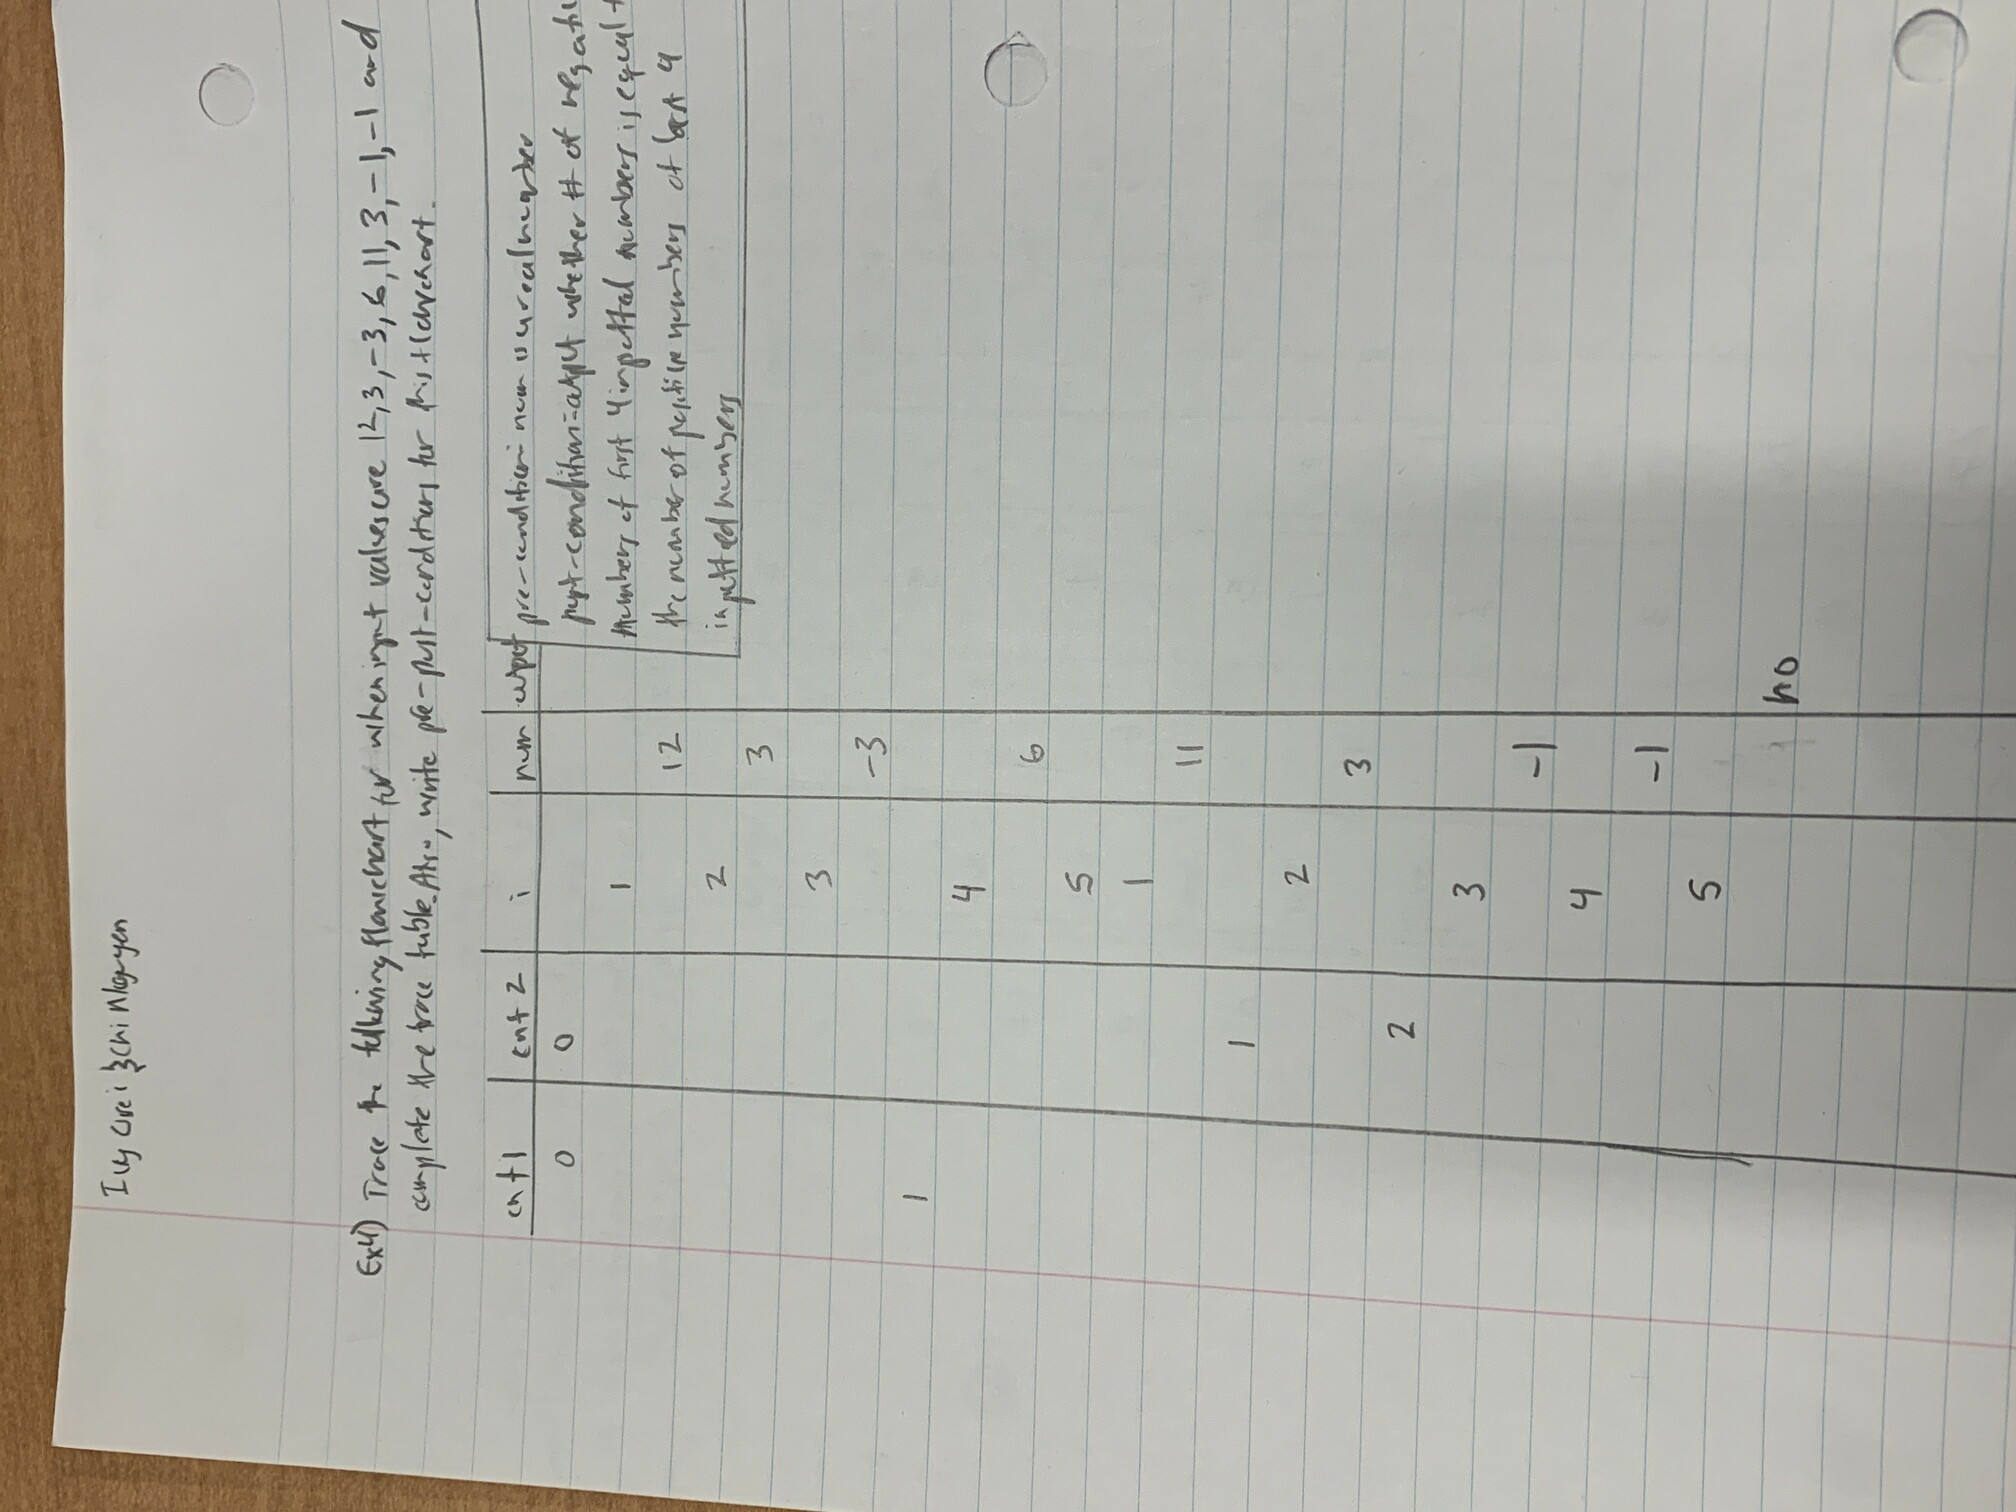 Ivy & Chi Nguyen
Ex4) Trace the following flowchart for when input values are 12, 3, -3, 6, 11, 3, -1, -1 and
complete the trace table. Also, write pre-post-conditions for this flowchart.
cnt1 cnt2 i num output
pre-condition= num is a real number
0 0
post-condition=output whether # of negativ
1
numbers of first 4 inputted numbers is equal t
12
the number of positive numbers of last 4
2
inputted numbers
3
3
-3
1
4
6
5
1
11
1
2
3
2
3
-1
4
-1
5
no